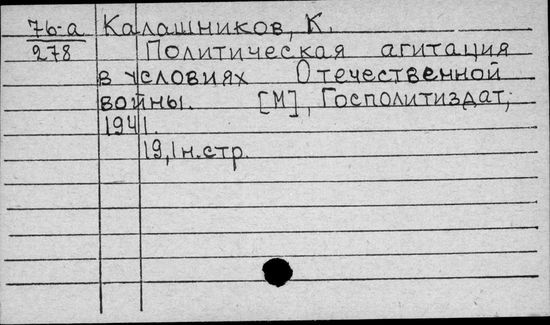 76-а Калашников, К.
278 Политическая агитация
в условиях Отечественной
войны. [М], Госполитиздат,
1941.
19,1н.стр.